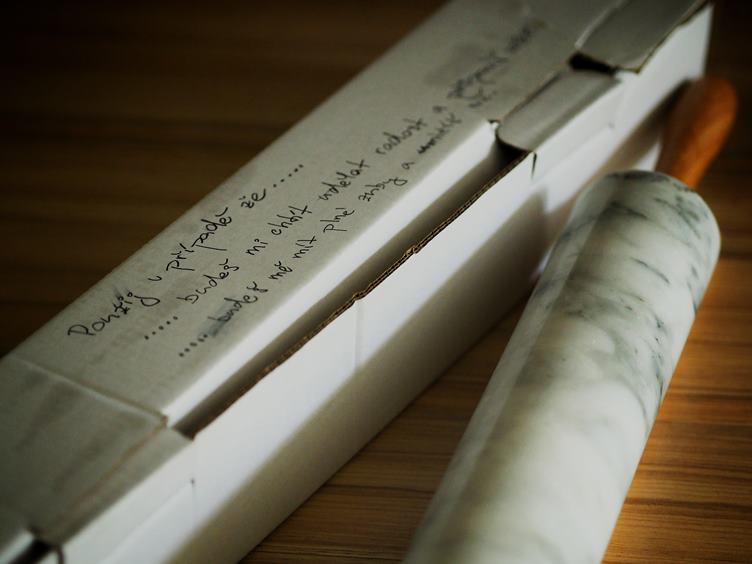 Použij v případě že .....
..... budeš mi chtít udělat radost a
..... budeš mě mít plné zuby a